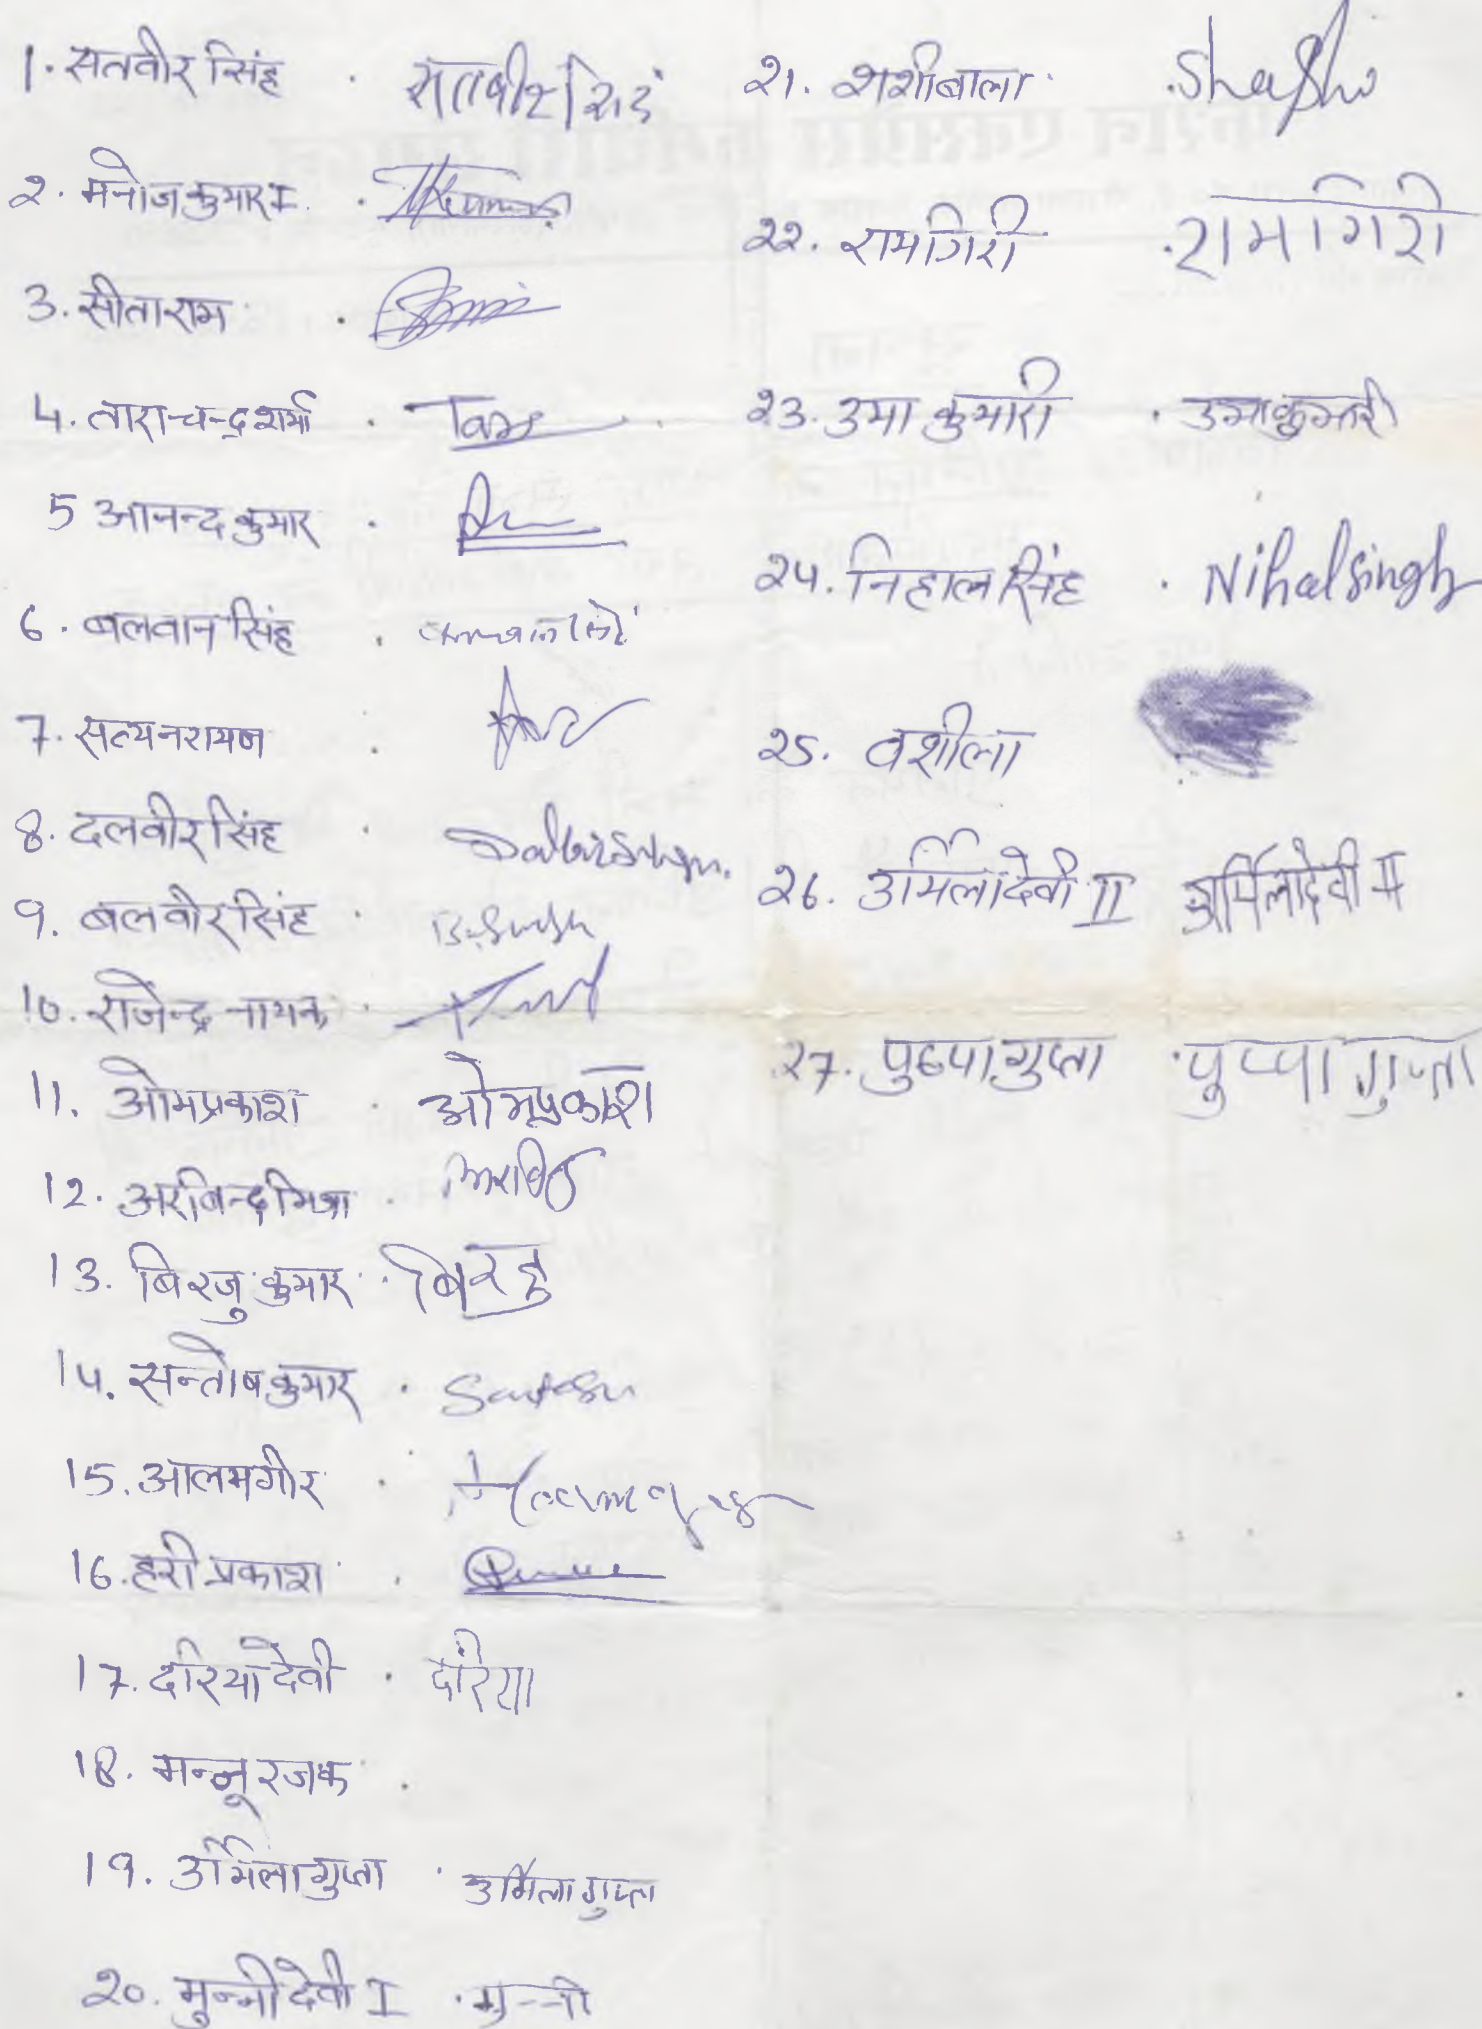 1. सतवीर सिंह . सतवीर सिहं
2. मनोज कुमार I .
3. सीताराम .
4. ताराचन्द्र शर्मा . Tara
5 आनन्द कुमार .
6. बलवान सिंह .
7. सत्यनरायण .
8. दलवीर सिंह . Dalbir Singh
9. बलवीर सिंह .
10. राजेन्द्र नायक .
11. ओमप्रकाश . ओमप्रकाश
12. अरबिन्द मिश्रा .
13. बिरजु कुमार . बिरजु
14. सन्तोष कुमार . Santosh
15. आलमगीर . Alamgir
16. हरी प्रकाश .
17. दरिया देवी . दरिया
18. मन्नू रजक .
19. उर्मिला गुप्ता . उर्मिला गुप्ता
20. मुन्नी देवी I . मुन्नी
21. शशीबाला . Shashi
22. रामगिरी . रामगिरी
23. उमा कुमारी . उमा कुमारी
24. निहाल सिंह . Nihal Singh
25. वशीला
26. उर्मिला देवी II उर्मिला देवी II
27. पुष्पा गुप्ता . पुष्पा गुप्ता